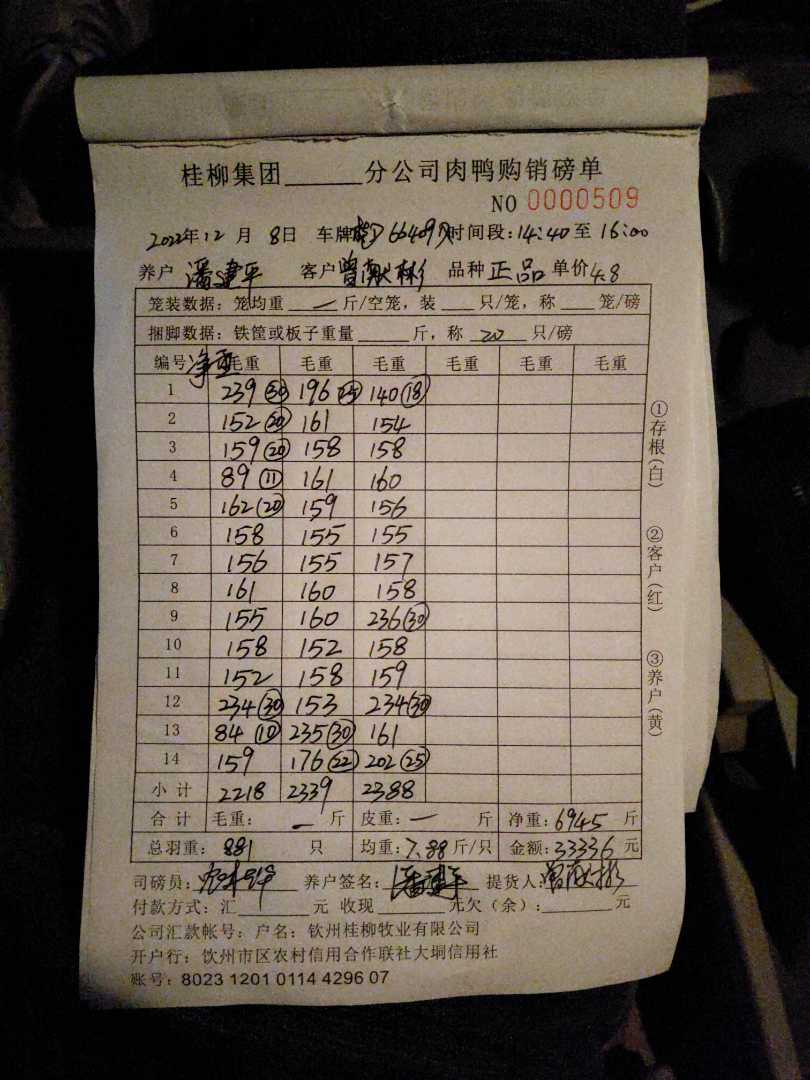 桂柳集团______分公司肉鸭购销磅单
NO 0000509
2022年12月8日 车牌 66409 时间段:14:40至16:00
养户 潘建平 客户 曾献彬 品种 正品 单价 4.8
笼装数据：笼均重 — 斤/空笼，装___只/笼，称___笼/磅
捆脚数据：铁筐或板子重量______斤，称 20 只/磅
编号 净重 毛重 毛重 毛重 毛重 毛重 毛重
1 239 (30) 196 (25) 140 (18)
2 152 (20) 161 154
3 159 (20) 158 158
4 89 (11) 161 160
5 162 (20) 159 156
6 158 155 155
7 156 155 157
8 161 160 158
9 155 160 236 (30)
10 158 152 158
11 152 158 159
12 234 (30) 153 234 (30)
13 84 (10) 235 (30) 161
14 159 176 (22) 202 (25)
小计 2218 2339 2388
合计 毛重：— 斤 皮重：— 斤 净重：6945 斤
总羽重：881 只 均重：7.88 斤/只 金额：33336 元
司磅员： 养户签名：潘建平 提货人：曾献彬
付款方式：汇______元 收现______元欠（余）：______元
公司汇款帐号：户名：钦州桂柳牧业有限公司
开户行：钦州市区农村信用合作联社大垌信用社
账号：8023 1201 0114 4296 07
①存根(白)
②客户(红)
③养户(黄)